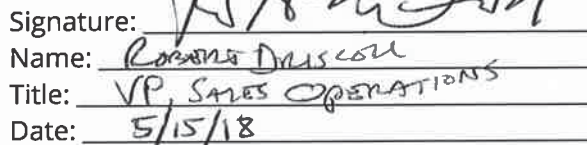 Signature:
Name: Robert Driscoll
Title: VP, Sales Operations
Date: 5/15/18